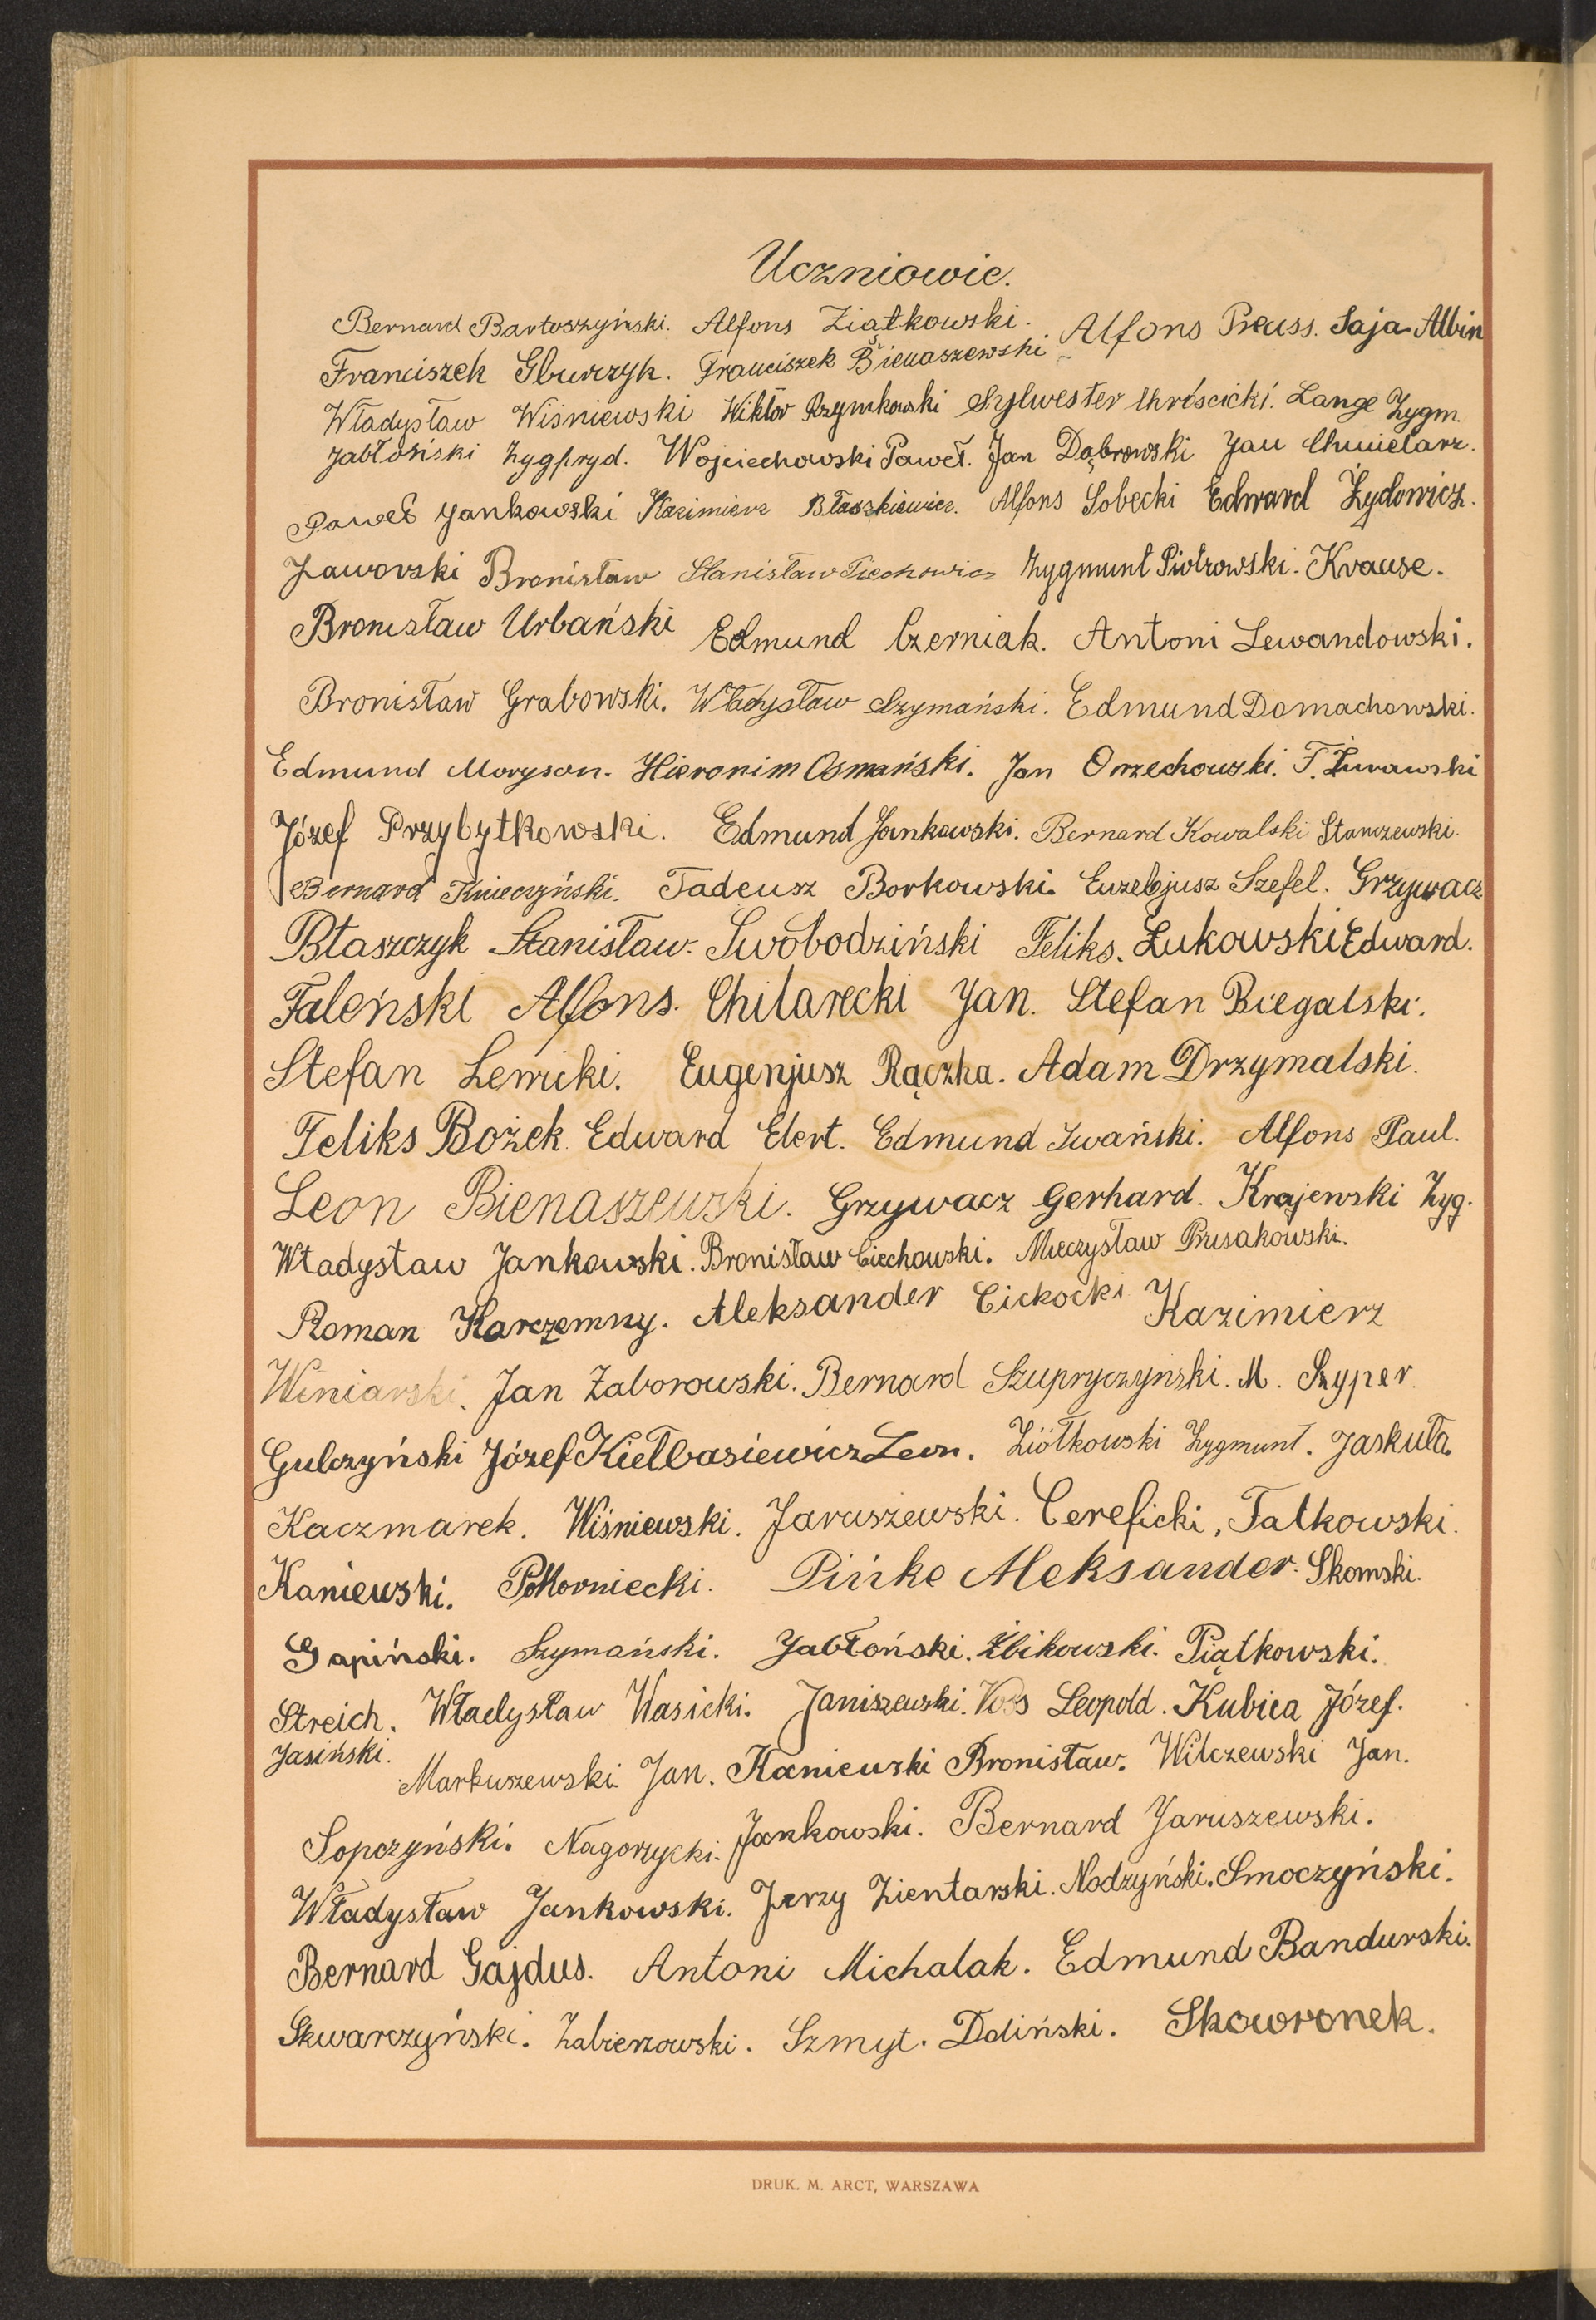 Uczniowie.
Bernard Bartoszyński. Alfons Ziątkowski. Alfons Preuss. Saja Albin
Franciszek Gburczyk. Franciszek Bienaszewski
Władysław Wiśniewski Wiktor Rzymkowski Sylwester Chróścicki. Lange Zygm.
Jabłoński Zygfryd. Wojciechowski Paweł. Jan Dąbrowski Jan Chmielarz.
Paweł Jankowski Kazimierz Błaszkiewicz. Alfons Sobecki Edward Żydowicz.
Jaworski Bronisław Stanisław Ciechowicz Zygmunt Piotrowski. Krause.
Bronisław Urbański Edmund Czerniak. Antoni Lewandowski.
Bronisław Grabowski. Władysław Szymański. Edmund Domachowski.
Edmund Moryson. Hieronim Osmański. Jan Orzechowski. F. Żurawski
Józef Przybytkowski. Edmund Jankowski. Bernard Kowalski Stanczewski.
Bernard Kmieczyński. Tadeusz Borkowski. Euzebjusz Szefel. Grzywacz
Błaszczyk Stanisław. Swobodziński Feliks. Łukowski Edward.
Faleński Alfons. Chilarecki Jan. Stefan Biegalski.
Stefan Lewicki. Eugenjusz Rączka. Adam Drzymalski.
Feliks Bożek. Edward Elert. Edmund Iwański. Alfons Paul.
Leon Bienaszewski. Grzywacz Gerhard. Krajewski Zyg.
Władysław Jankowski. Bronisław Ciechowski. Mieczysław Prusakowski.
Roman Karczemny. Aleksander Cickocki Kazimierz
Winiarski. Jan Zaborowski. Bernard Szupryczyński. M. Szyper.
Gulczyński Józef Kiełbasiewicz Leon. Ziółkowski Zygmunt. Jaskuła.
Kaczmarek. Wiśniewski. Jaruszewski. Cereficki, Falkowski.
Kaniewski. Pokorniecki. Pińke Aleksander. Skomski.
Gapiński. Szymański. Jabłoński. Żbikowski. Piątkowski.
Streich. Władysław Wasicki. Janiszewski. Voss Leopold. Kubica Józef.
Jasiński. Markuszewski Jan. Kaniewski Bronisław. Wilczewski Jan.
Sopczyński. Nagorzycki. Jankowski. Bernard Jaruszewski.
Władysław Jankowski. Jerzy Zientarski. Nodzyński. Smoczyński.
Bernard Gajdus. Antoni Michalak. Edmund Bandurski.
Skwarczyński. Zabierzowski. Szmyt. Doliński. Skowronek.
DRUK. M. ARCT, WARSZAWA